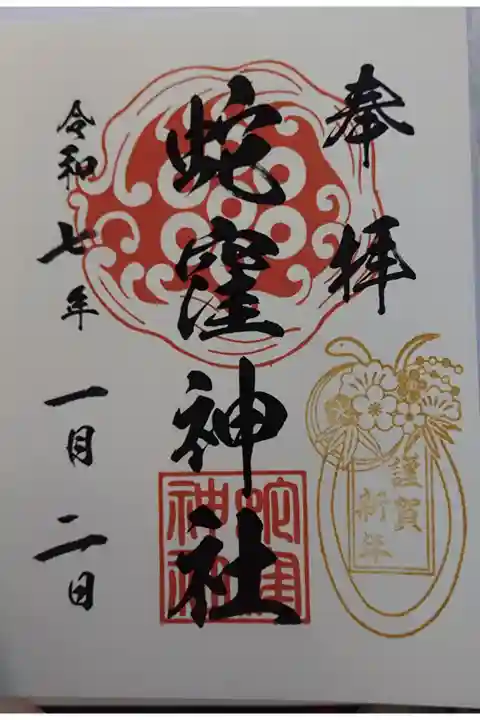 奉拝
蛇窪神社
令和七年一月二日
謹賀
新年